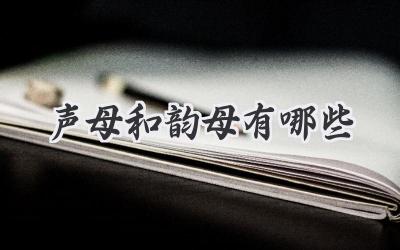 声母和韵母有哪些